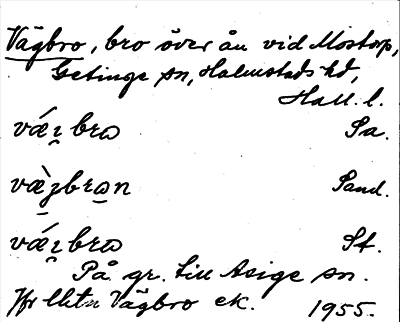 Vägbro, bro över ån vid Mostorp,
Getinge sn, Halmstads hd,
Hall. l.
vǽɪ̯brɷ Sa.
væ̀ʒbrɷn Sand.
vǽɪ̯brɷ St.
På gr. till Asige sn.
Jfr Vägbro ek. 1955.